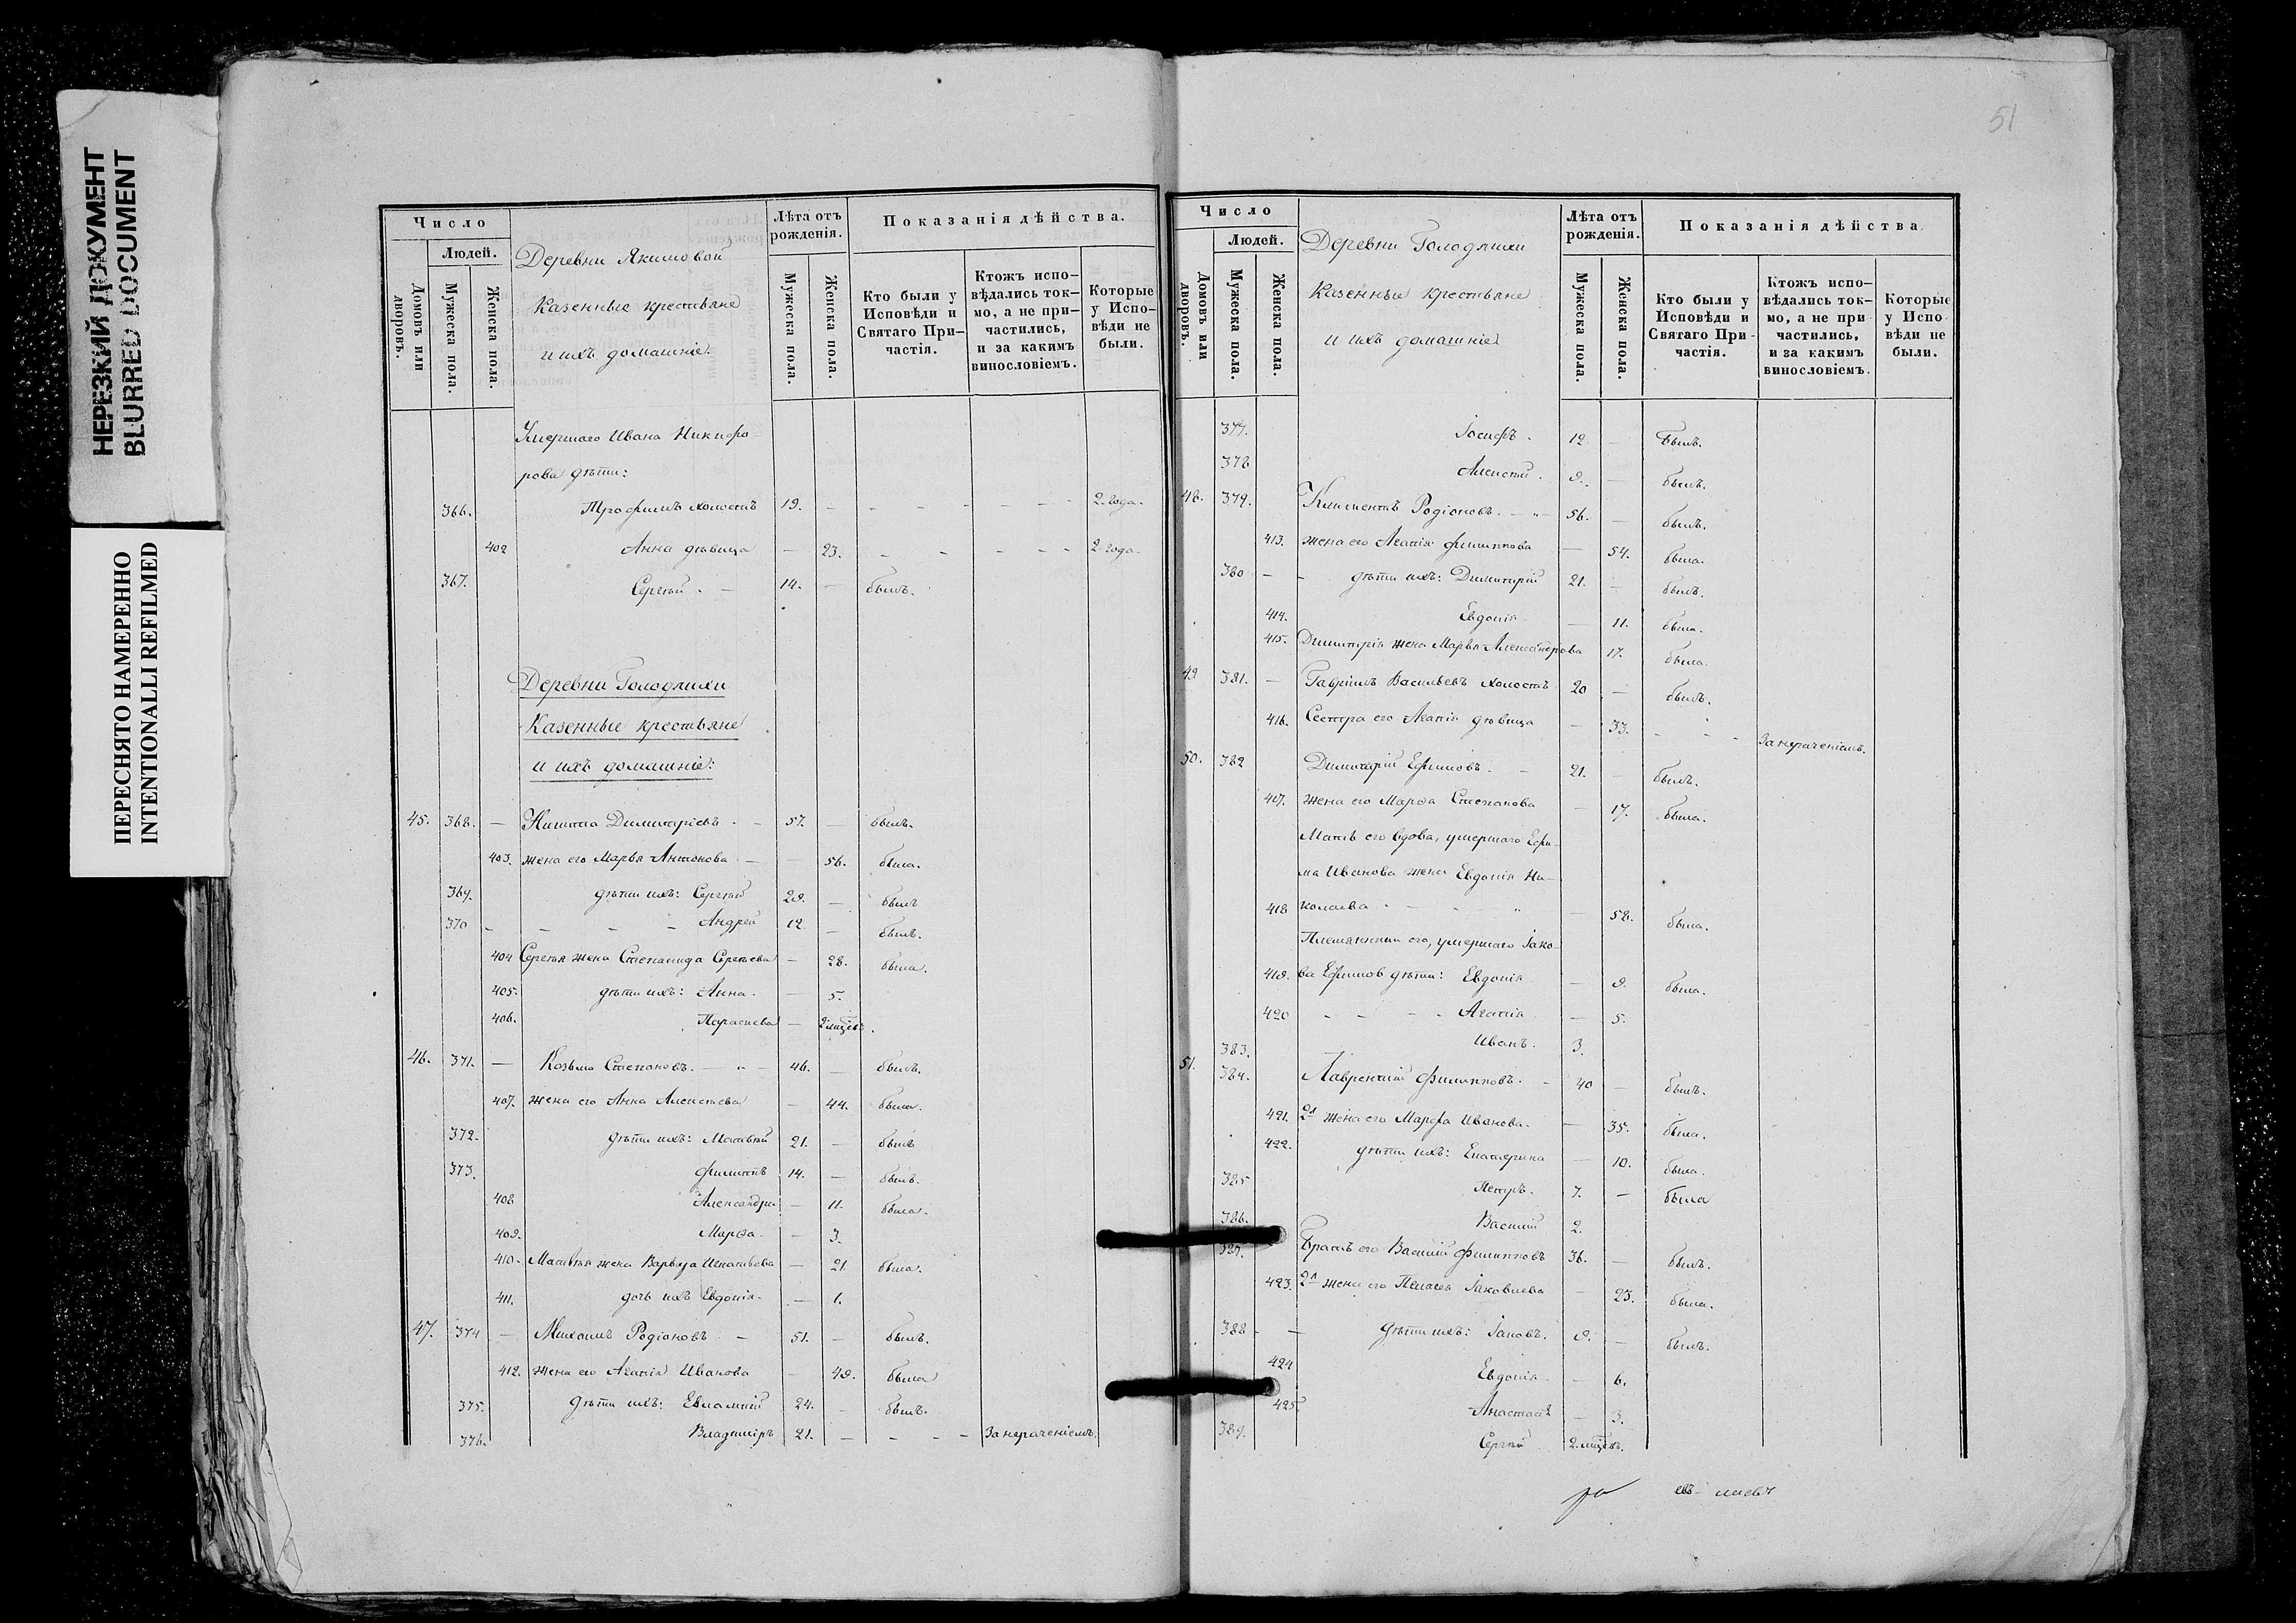 НЕРЕЗКИЙ ДОКУМЕНТ
BLURRED DOCUMENT
ПЕРЕСНЯТО НАМЕРЕННО
INTENTIONALLI REFILMED
Число
Людей.
Домовъ или дворовъ.
Мужеска пола.
Женска пола.
Деревни Якимовой
казенные крестьяне
и ихъ домашніе.
Лѣта отъ рожденія.
Мужеска пола.
Женска пола.
Показанія дѣйства.
Кто были у Исповѣди и Святаго При-частія.
Ктожъ испо-вѣдались ток-мо, а не при-частились, и за какимъ винословіемъ.
Которые у Испо-вѣди не были.
Умершаго Ивана Никифо-
рова дѣти:
366. Трофимъ холостъ 19. - - - - - - 2 года.
402 Анна дѣвица - 23. - - - - - 2 года.
367. Сергѣй. - 14. - былъ.
Деревни Голодлихи
Казенные крестьяне
и ихъ домашніе:
45. 368. - Никита Димитріевъ - 57. - былъ.
403. жена его Марья Антонова - - 56. была.
369. дѣти ихъ: Сергѣй 29. - былъ
370 - - - - Андрей 12 - былъ.
404 Сергѣя жена Степанида Сергѣева - 28. была.
405. дѣти ихъ: Анна. - 5.
406. Параскева - 2 мѣсЯцевъ.
46. 371. - Козьма Степановъ. - " - 46. - былъ.
407. жена его Анна Алексѣева - 44. была.
372. дѣти ихъ: Матвѣй 21. - былъ
373. Филиппъ 14. - былъ.
408 Александра - 11. была.
409. Марѳа. - 3.
410. Матвѣя жена Варвара Игнатьева - 21 была.
411. дочь ихъ Евдокія - - 1.
47. 374 - Михаилъ Родіоновъ - 51. - былъ.
412. жена его Агапія Иванова - 49. была
375. дѣти ихъ: Евлампій 24. - былъ.
376. Владиміръ 21. - - - - За нераченіемъ.
51
Число
Людей.
Домовъ или дворовъ.
Мужеска пола.
Женска пола.
Деревни Голодлихи
Казенные крестьяне
и ихъ домашніе
Лѣта отъ рожденія.
Мужеска пола.
Женска пола.
Показанія дѣйства
Кто были у Исповѣди и Святаго При-частія.
Ктожъ испо-вѣдались ток-мо, а не при частились, и за какимъ винословіемъ.
Которые у Испо вѣди не были.
377. Іосифъ. 12 - былъ.
378 Алексѣй. 9. - былъ.
48. 379. Климентъ Родіоновъ. - " - 56. - былъ.
413. жена его Агапія Филиппова - 54. была.
380 - - дѣти ихъ: Димитрій 21. - былъ.
414. Евдокія - 11. была.
415. Димитрія жена Марья Александрова 17. была.
49 381. - Гавріилъ Васильевъ холостъ 20 - былъ.
416. Сестра его Агапія дѣвица - 33. - - - За нераченіемъ.
50. 382 Димитрій Ефимовъ. - 21. - былъ.
417. жена его Марѳа Степанова - 17. была.
Мать его вдова, умершаго Ефи-
ма Иванова жена Евдокія Ни-
418 колаева - - - " - 58. была.
Племянники его, умершаго Іако-
419. ва Ефимов дѣти: Евдокія - 9. была.
420 - - - - Агапія - 5.
383. Иванъ. 3.
51. 384. Лаврентій Филипповъ. - 40 - былъ.
421. 2я жена его Марѳа Иванова. - 35. была.
422. дѣти ихъ: Екатерина - 10. была.
385 Петръ. 7. - была
386. Василій 2.
387. Братъ его Василій Филипповъ 36. - былъ.
423. 2я жена его Пелагея Іаковлева - 23. была.
388 - - дѣти ихъ: Іаковъ. 9. - былъ.
424 Евдокія - - 6.
425. Анастасія - 3.
389. Сергѣй 2. мѣсяцевъ.